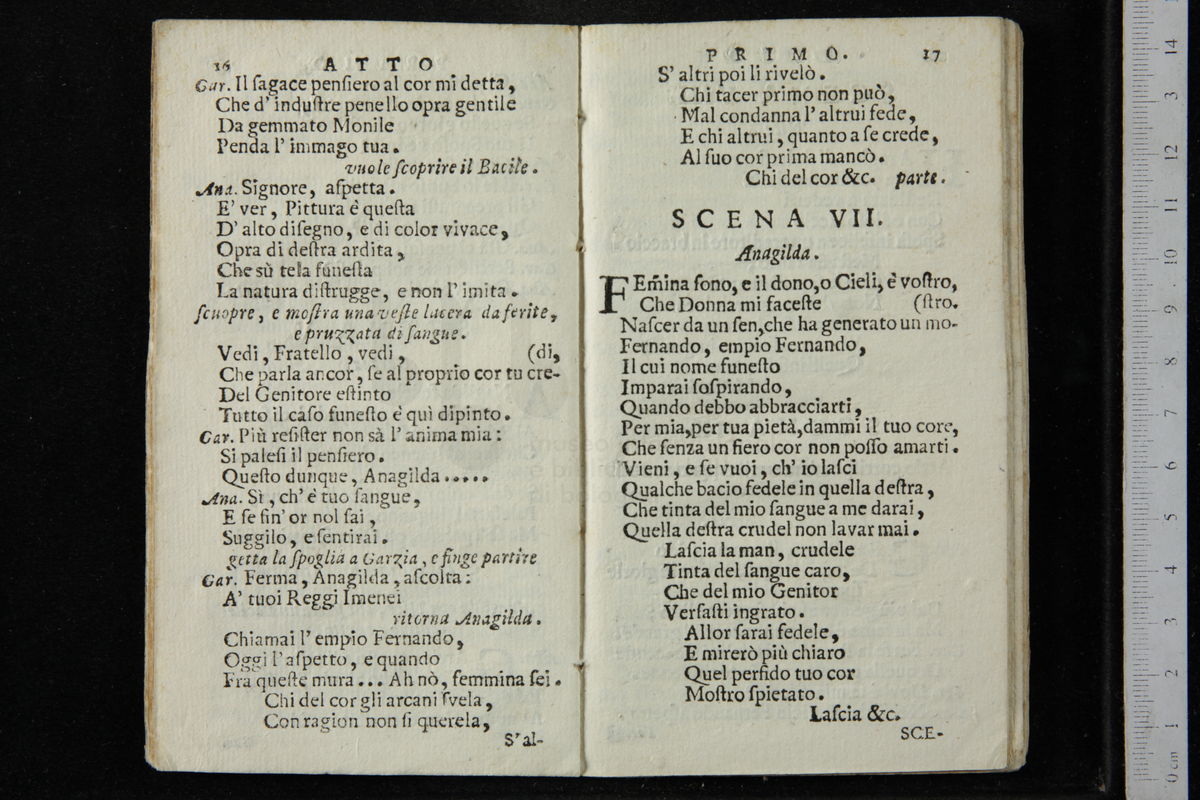 16 ATTO
Gar. Il ſagace penſiero al cor mi detta,
Che d' induſtre penello opra gentile
Da gemmato Monile
Penda l' immago tua.
vuole ſcoprire il Bacile.
Ana. Signore, aſpetta.
E' ver, Pittura è queſta
D' alto diſegno, e di color vivace,
Opra di deſtra ardita,
Che sù tela funeſta
La natura diſtrugge, e non l' imita.
ſcuopre, e moſtra una veſte lacera da ferite,
e pruzzata di ſangue.
Vedi, Fratello, vedi, (di,
Che parla ancor, ſe al proprio cor tu cre-
Del Genitore eſtinto
Tutto il caſo funeſto è quì dipinto.
Gar. Più reſiſter non sà l' anima mia:
Si paleſi il penſiero.
Queſto dunque, Anagilda.....
Ana. Sì, ch' è tuo ſangue,
E ſe fin' or nol ſai,
Suggilo, e ſentirai.
getta la ſpoglia a Garzia, e finge partire
Gar. Ferma, Anagilda, aſcolta:
A' tuoi Reggi Imenei
ritorna Anagilda.
Chiamai l' empio Fernando,
Oggi l' aſpetto, e quando
Fra queſte mura... Ah nò, femmina ſei.
Chi del cor gli arcani ſvela,
Con ragion non ſi querela,
S' al-
PRIMO. 17
S' altri poi li rivelò.
Chi tacer primo non può,
Mal condanna l' altrui fede,
E chi altrui, quanto a ſe crede,
Al ſuo cor prima mancò.
Chi del cor &c. parte.
SCENA VII.
Anagilda.
FEm̃ina ſono, e il dono, o Cieli, è voſtro,
Che Donna mi faceſte (ſtro.
Naſcer da un ſen, che ha generato un mo-
Fernando, empio Fernando,
Il cui nome funeſto
Imparai ſoſpirando,
Quando debbo abbracciarti,
Per mia, per tua pietà, dammi il tuo core,
Che ſenza un fiero cor non poſſo amarti.
Vieni, e ſe vuoi, ch' io laſci
Qualche bacio fedele in quella deſtra,
Che tinta del mio ſangue a me darai,
Quella deſtra crudel non lavar mai.
Laſcia la man, crudele
Tinta del ſangue caro,
Che del mio Genitor
Verſaſti ingrato.
Allor ſarai fedele,
E mirerò più chiaro
Quel perfido tuo cor
Moſtro ſpietato.
Laſcia &c.
SCE-